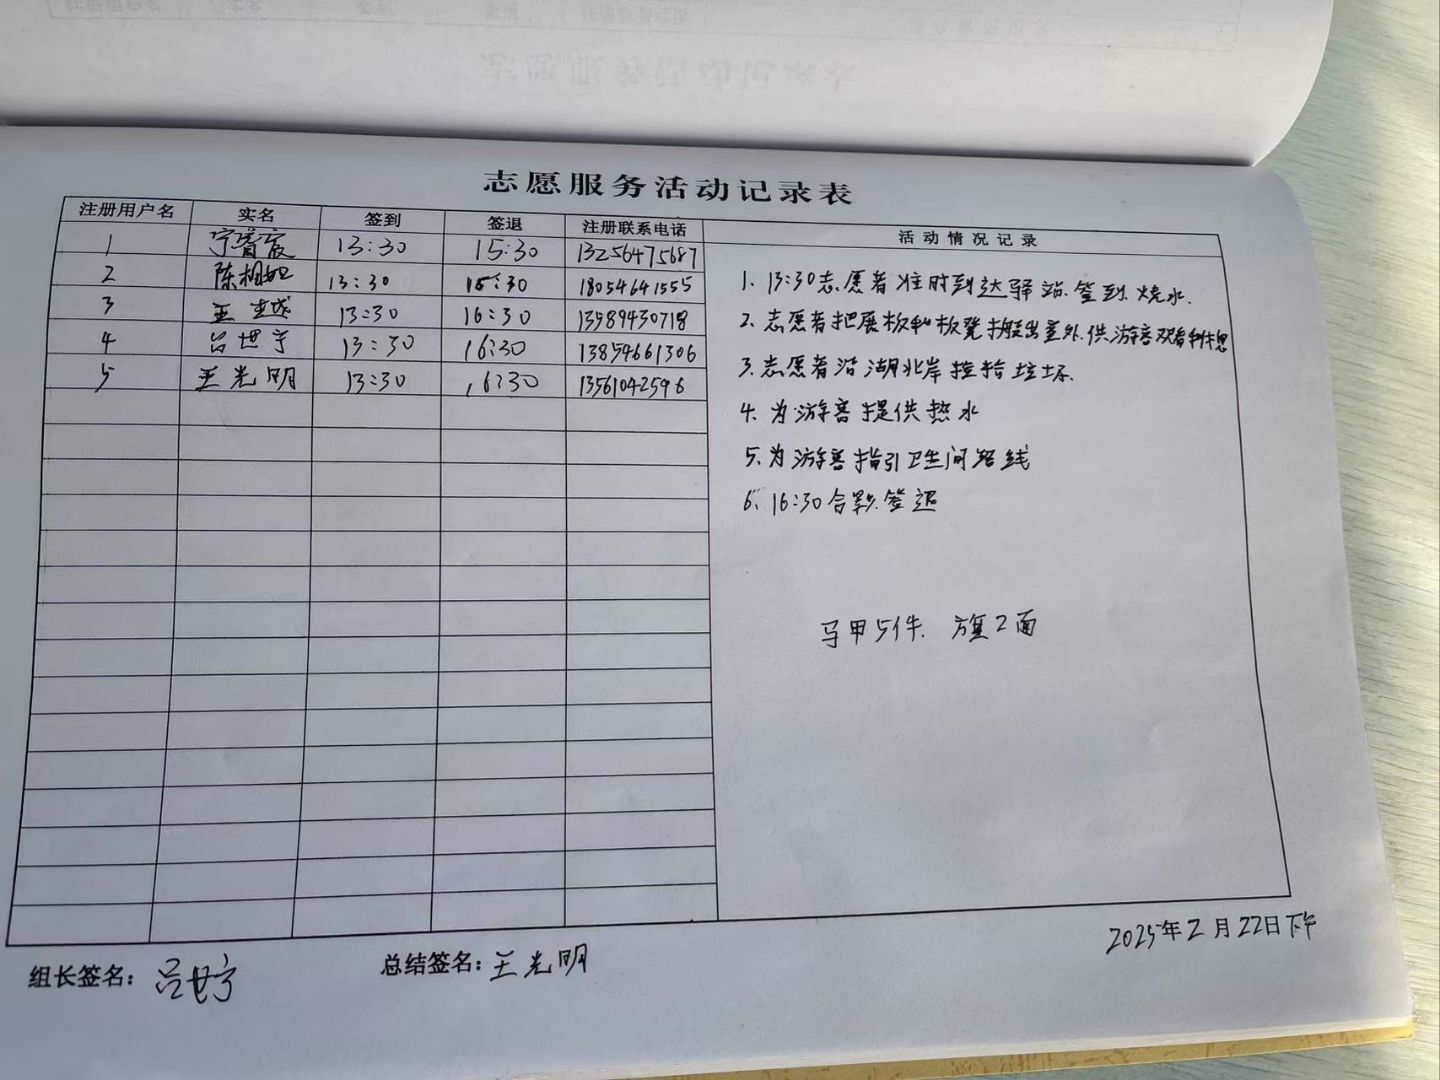 志愿服务活动记录表
注册用户名 实名 签到 签退 注册联系电话 活动情况记录
1 宁 13:30 15:30 13256475687
2 陈相如 13:30 15:30 18054641555
3 王 13:30 16:30 13589430718
4 吕世宇 13:30 16:30 13854661306
5 王光明 13:30 16:30 13561042596
1. 13:30志愿者准时到达驿站.签到.烧水.
2. 志愿者把展板和板凳搬出室外.供游客观看和休息
3. 志愿者沿湖北岸捡拾垃圾.
4. 为游客提供热水
5. 为游客指引卫生间路线
6. 16:30合影.签退
马甲5件. 旗2面
2025年2月22日下午
组长签名: 吕世宇 总结签名: 王光明